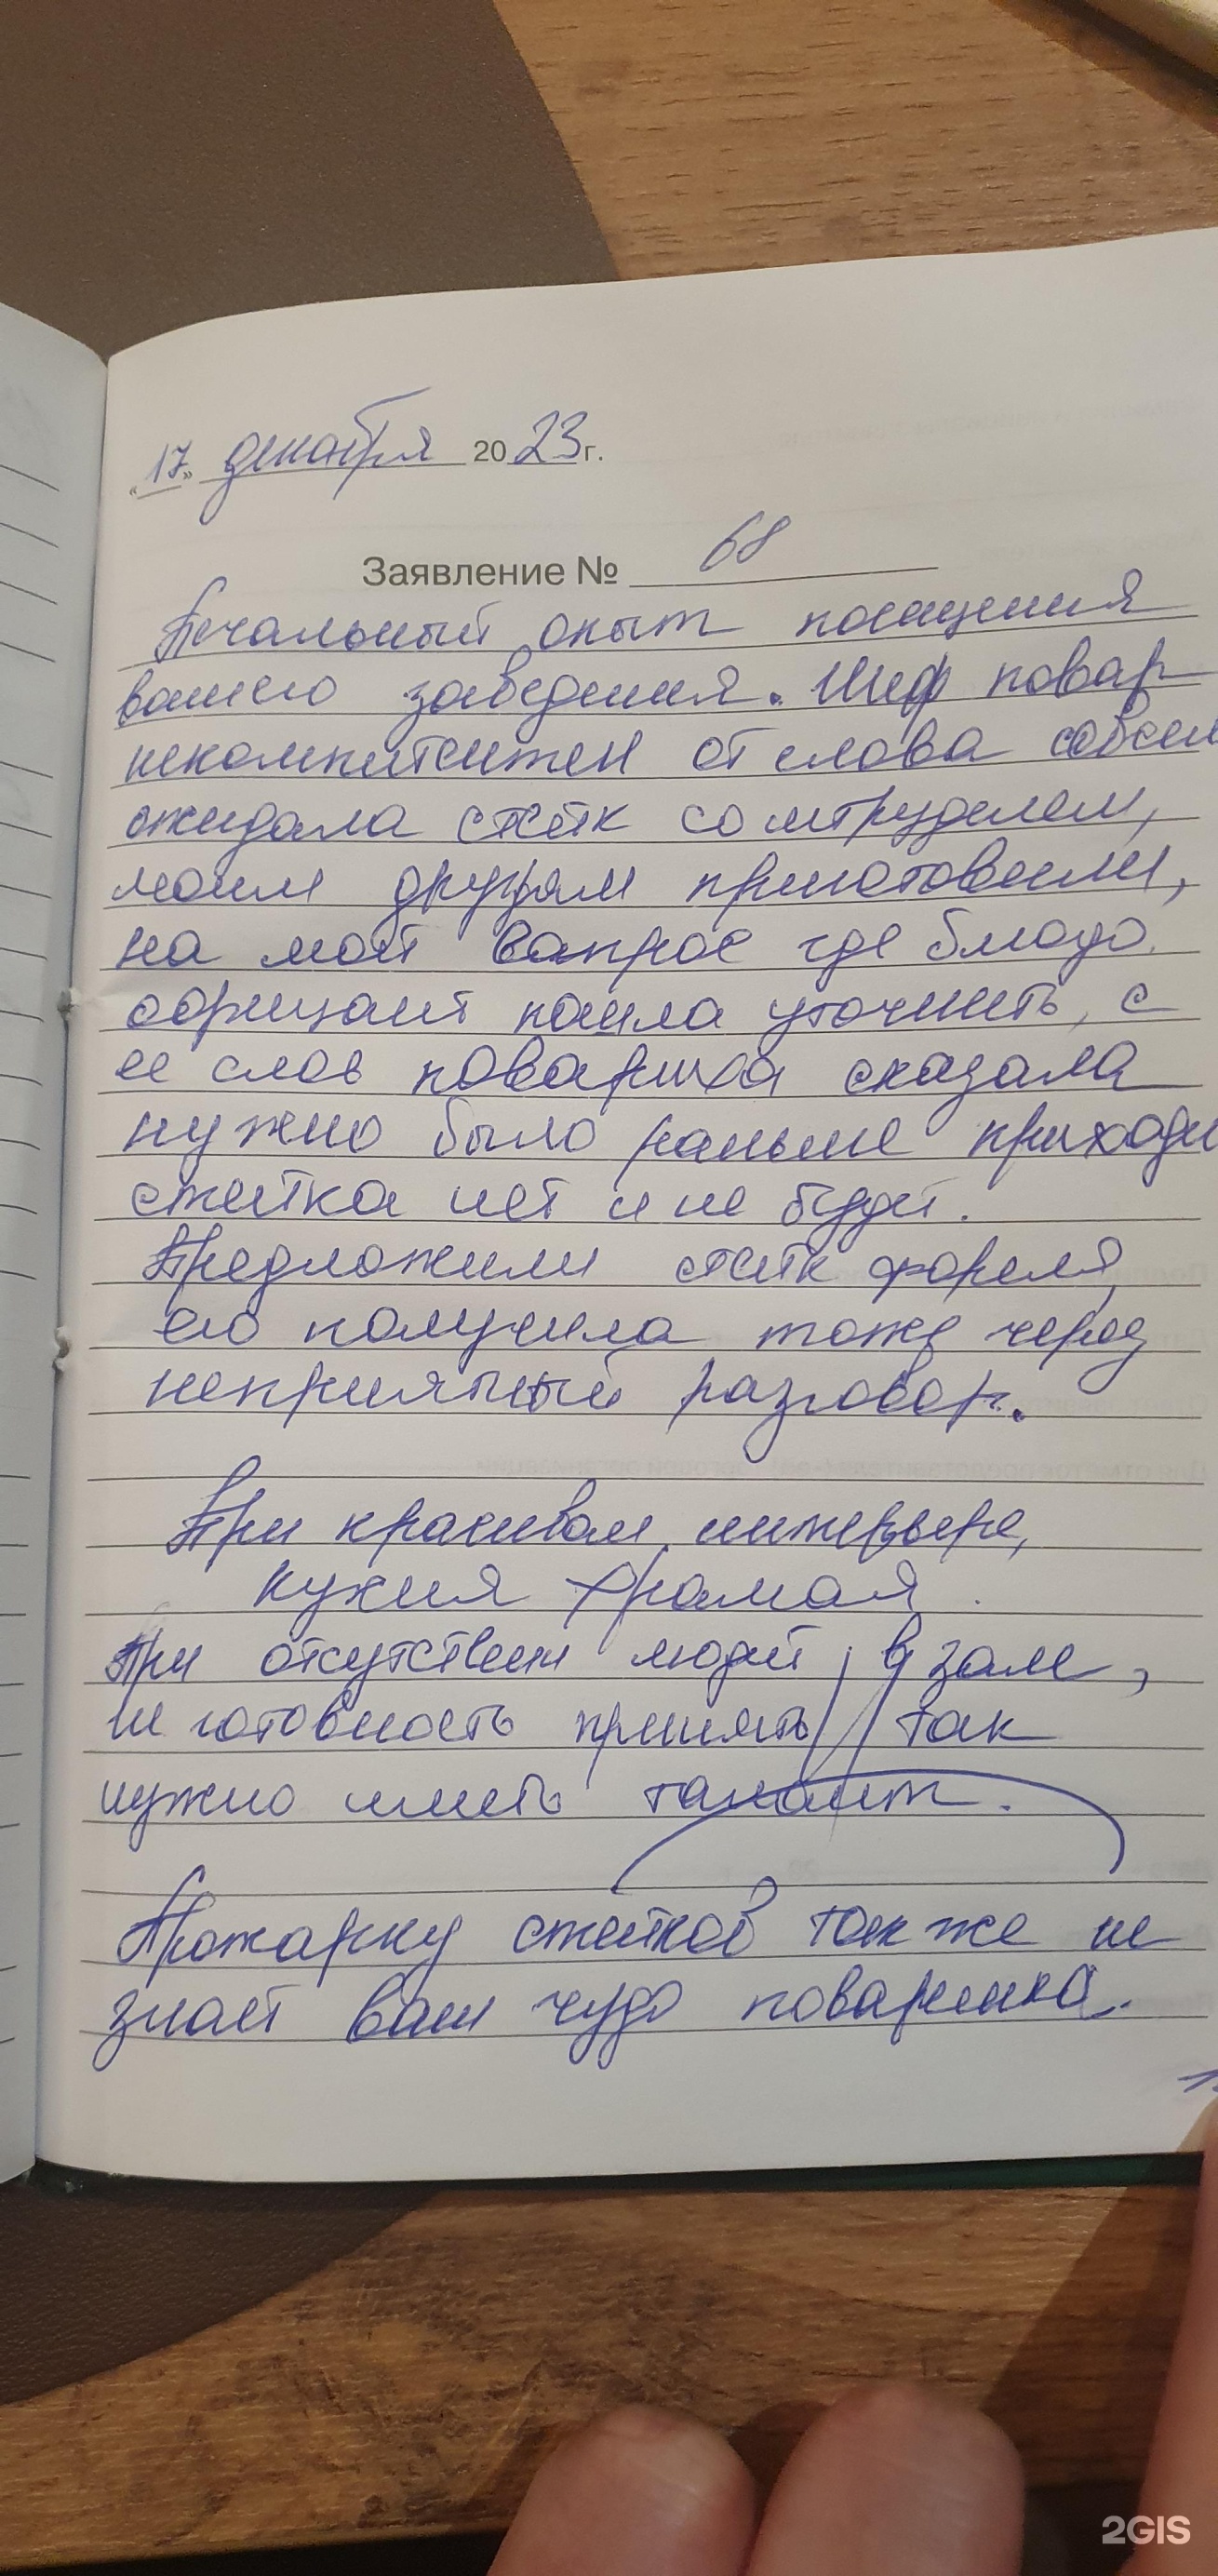 "17" декабря 2023г.
Заявление № 68
Печальный опыт посещения
вашего заведения. Шеф повар
некомпитентен от слова совсем
ожидала стейк со штруделем,
моим друзьям приготовили,
на мой вапрос где блюдо
официант пошла уточнить, с
ее слов повариха сказала
нужно было раньше приходи
стейка нет и не будет.
Предложили стейк фореля,
его получила тоже через
неприятный разговор.
При красивом интерьере,
кухня хромая
При отсутствии людей в зале,
не готовность принять так
нужно иметь талант.
Прожарку стейков также не
знает ваш чудо поваришка.
2GIS